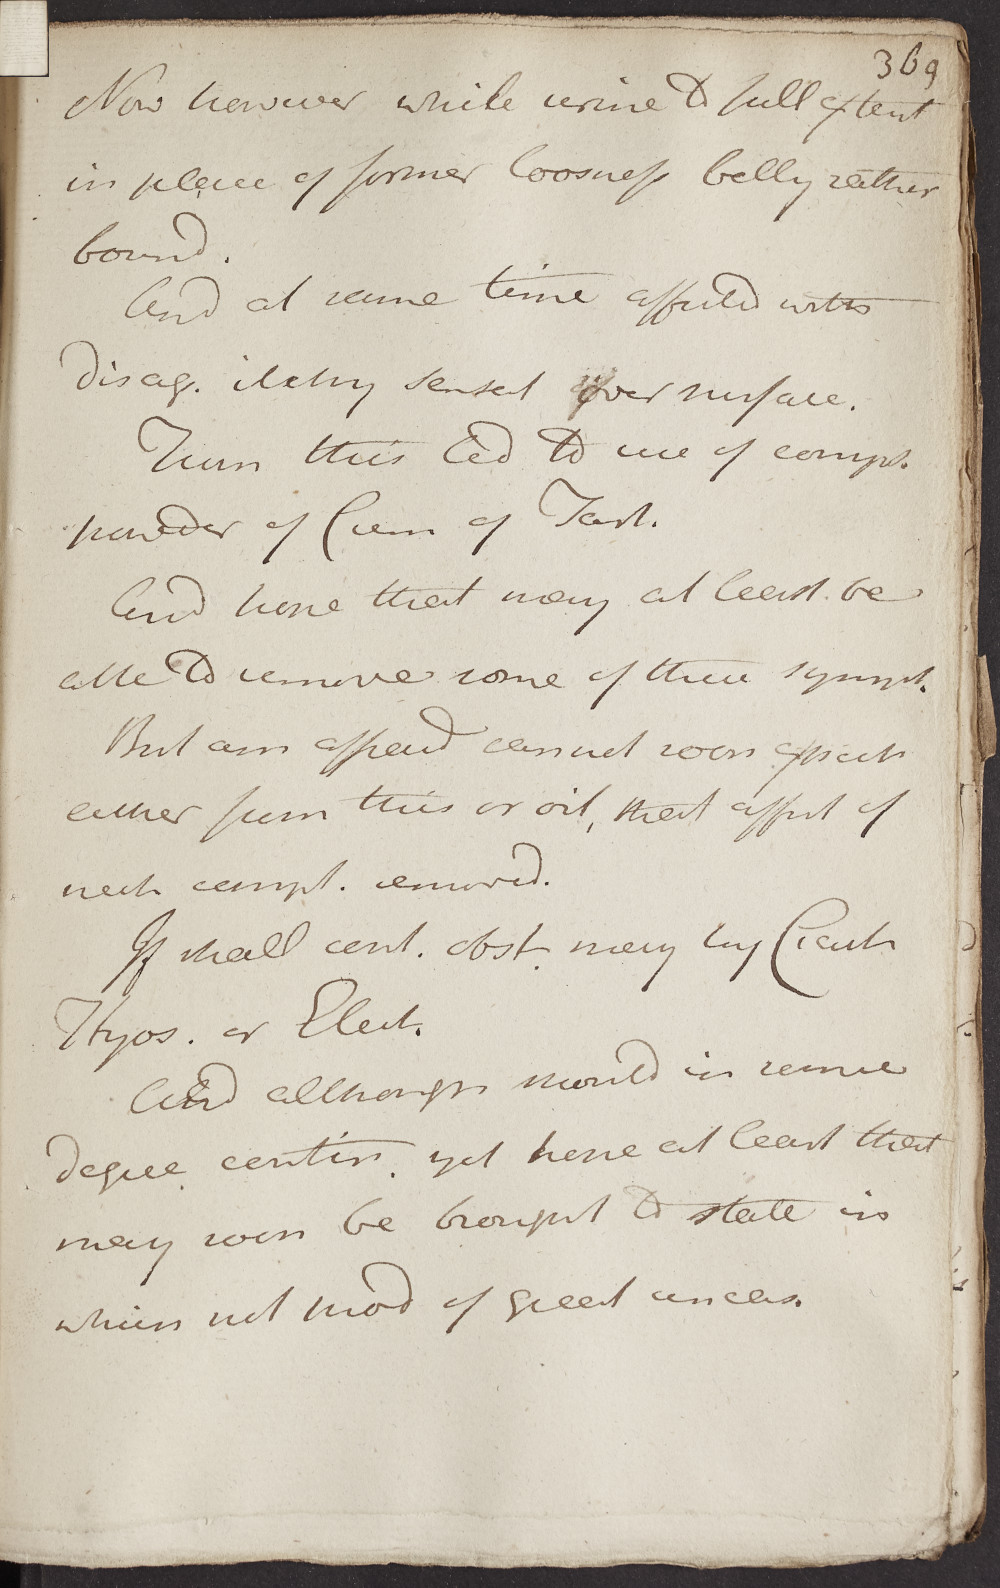 369
Now however while urine to full extent
in place of former looseness belly rather
bound.
And at same time affected with
disag. itchy sensat over surface.
From this led to use of comp.
powder of Crem of Tart.
And hope that may at least be
able to remove some of these sympt.
But am affraid cannot soon expect
either from this or oil, that affect of
neck compt. removed.
If shall cont. obst. may try Cicut
Hyos. or Elect.
And although should in some
degree contin. yet hope at least that
may soon be brought to state in
which not prod of great uneas.